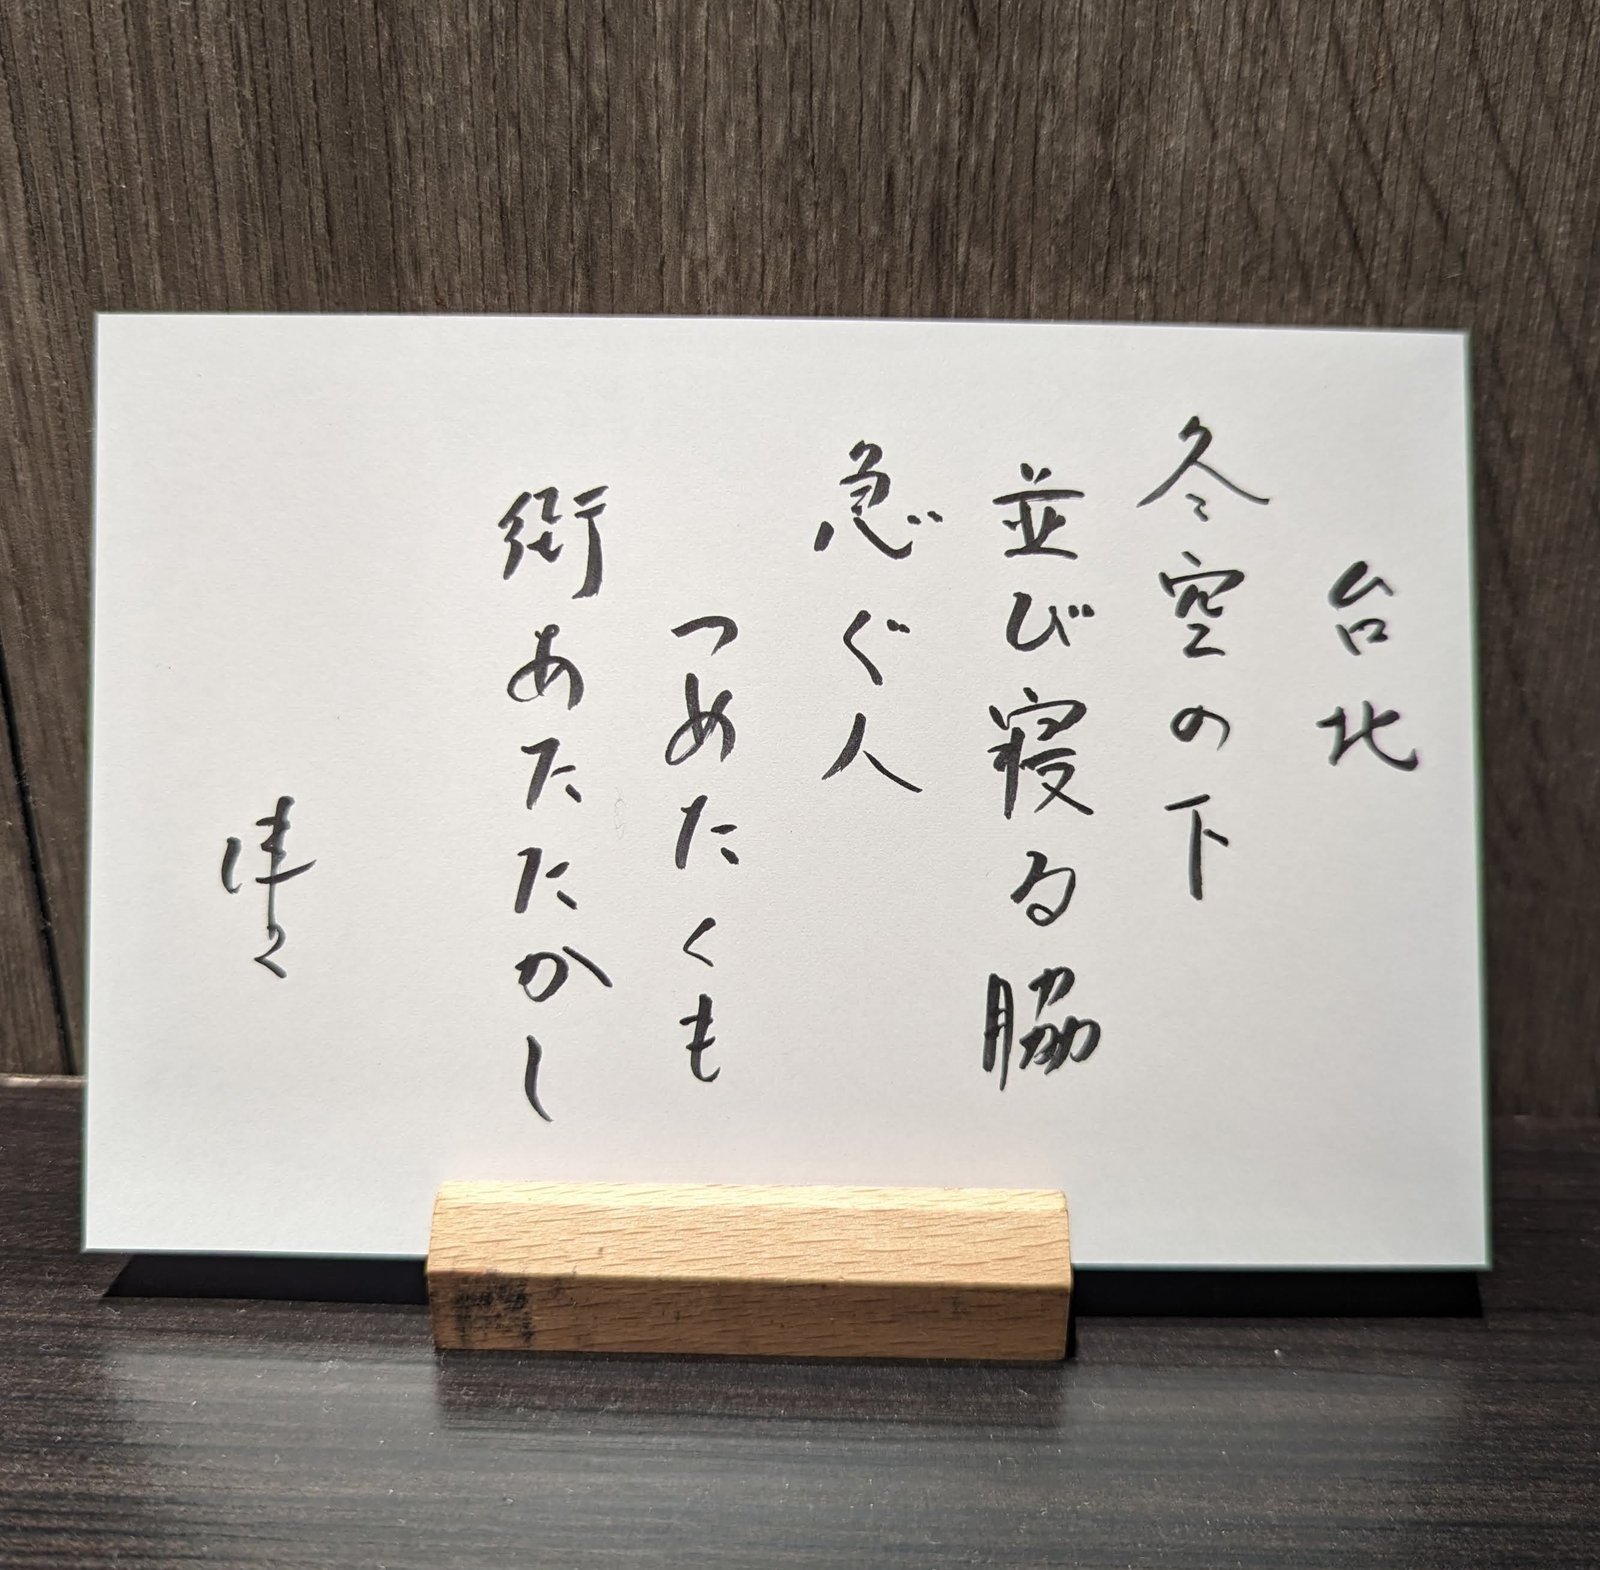 台北
冬空の下
並び寝る脇
急ぐ人
つめたくも
街あたたかし